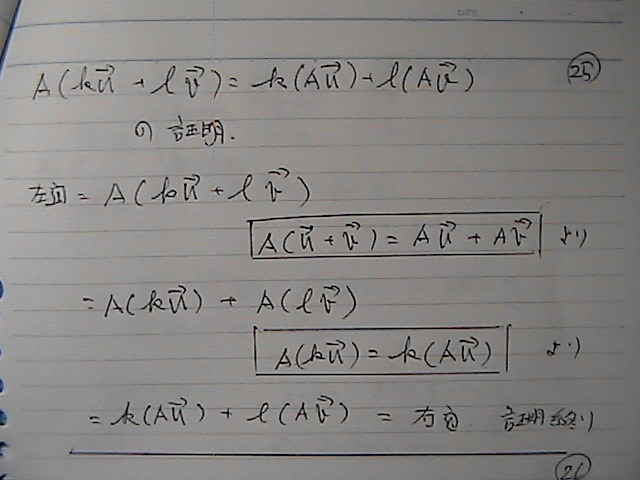 A(k\vec{u} + l\vec{v}) = k(A\vec{u}) + l(A\vec{v}) ㉕
の証明.
左辺 = A(k\vec{u} + l\vec{v})
A(\vec{u} + \vec{v}) = A\vec{u} + A\vec{v} より
= A(k\vec{u}) + A(l\vec{v})
A(k\vec{u}) = k(A\vec{u}) より
= k(A\vec{u}) + l(A\vec{v}) = 右辺 証明終り